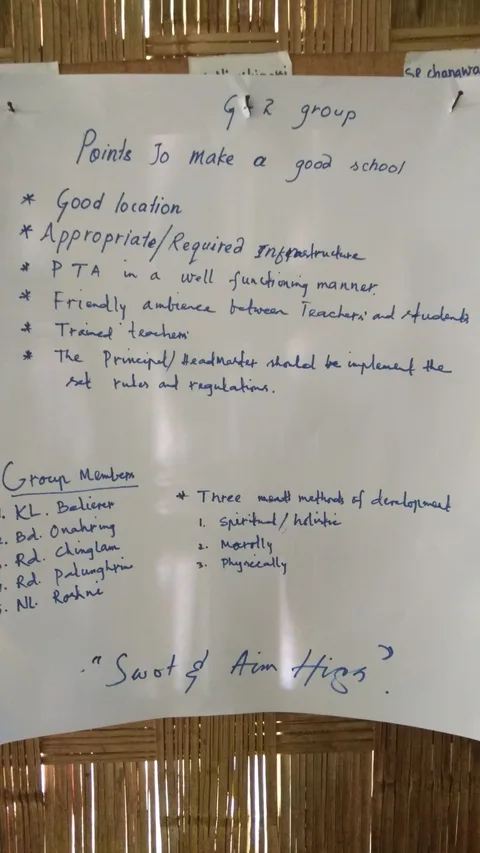 SP changwa
G-2 group
Points To make a good school
* Good location
* Appropriate/Required Infrastructure
* PTA in a well functioning manner.
* Friendly ambience between Teachers and students
* Trained teachers
* The Principal/Headmaster should be implement the
set rules and regulations.
Group Members
KL. Believer
Bd. Onahring
Rd. Chinglam
Rd. Palunghim
NL. Roshni
* Three methods of development
1. Spiritual/holistic
2. Morally
3. Physically
"Swot & Aim High".